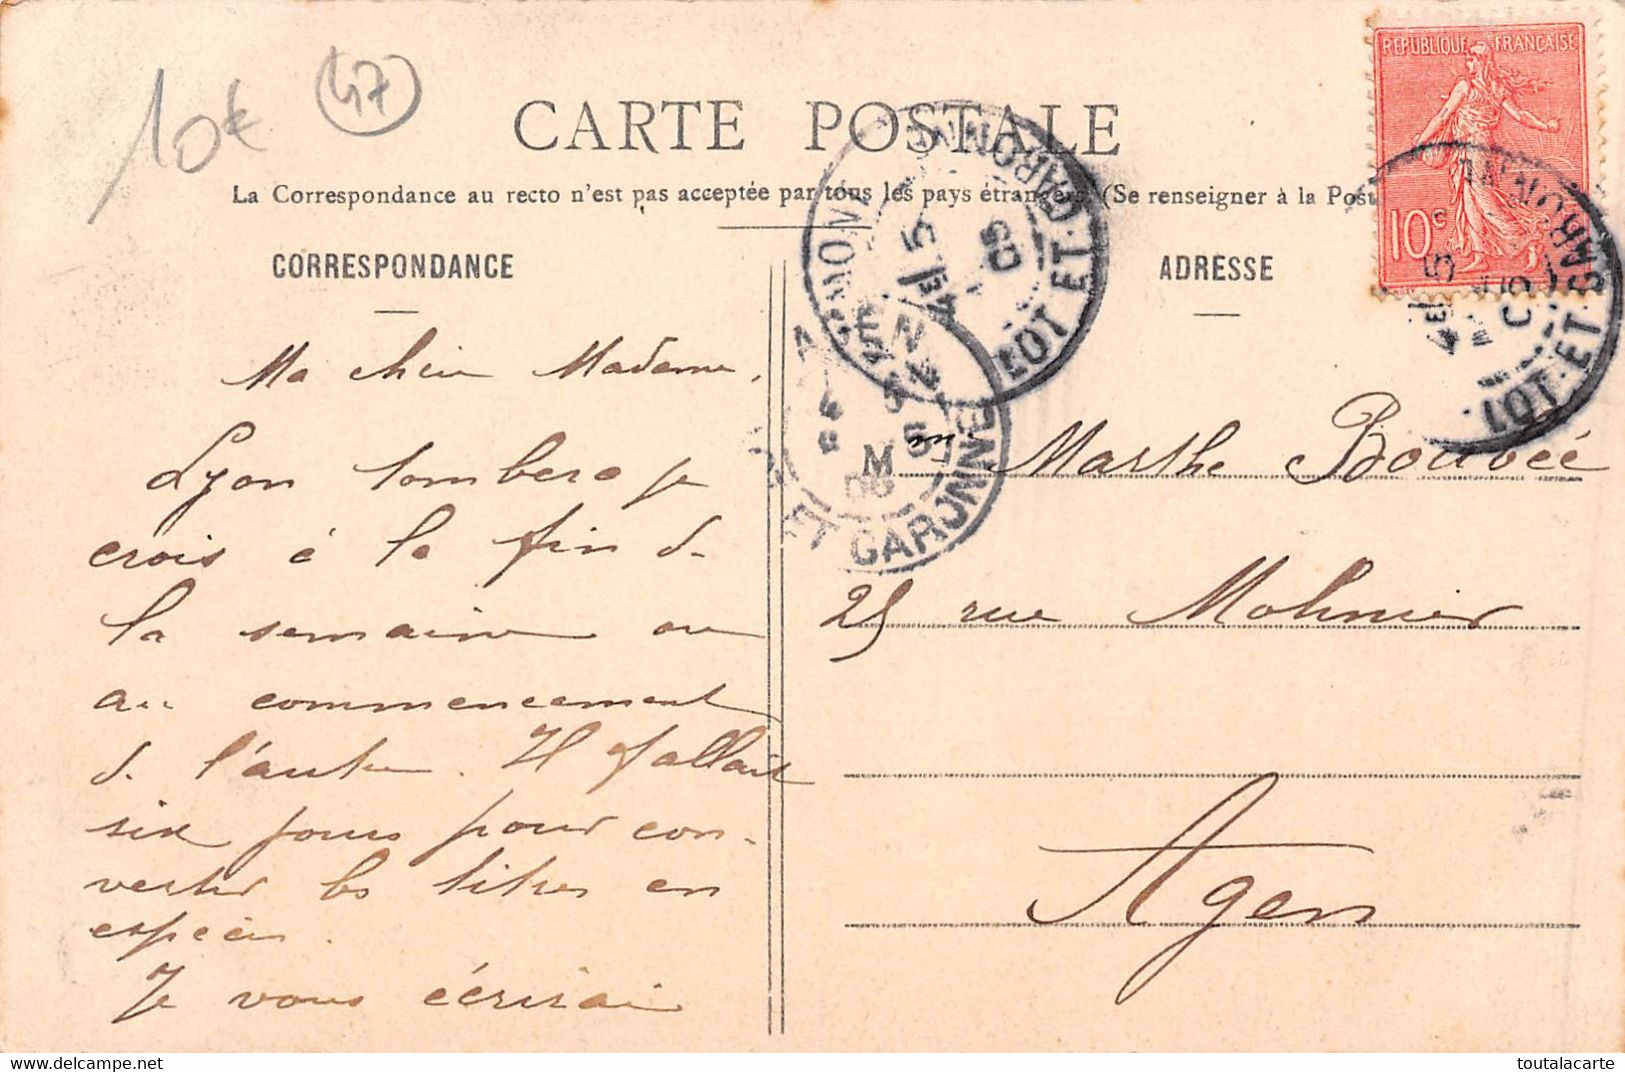 10€
47
CARTE POSTALE
La Correspondance au recto n'est pas acceptée par tous les pays étrangers (Se renseigner à la Post
CORRESPONDANCE
ADRESSE
REPUBLIQUE FRANÇAISE
10c
LOT ET GARONNE
5
05
LOT ET GARONNE
5
05
ET GARONNE
Ma chère Madame,
Lyon tombera je
crois à la fin de
la semaine ou
au commencement
de l'autre. Il fallait
six jours pour con-
vertir les titres en
espèces.
Je vous écrirai
Mme Marthe Bouvée
25 rue Molinier
Agen
delcampe.net
toutalacarte